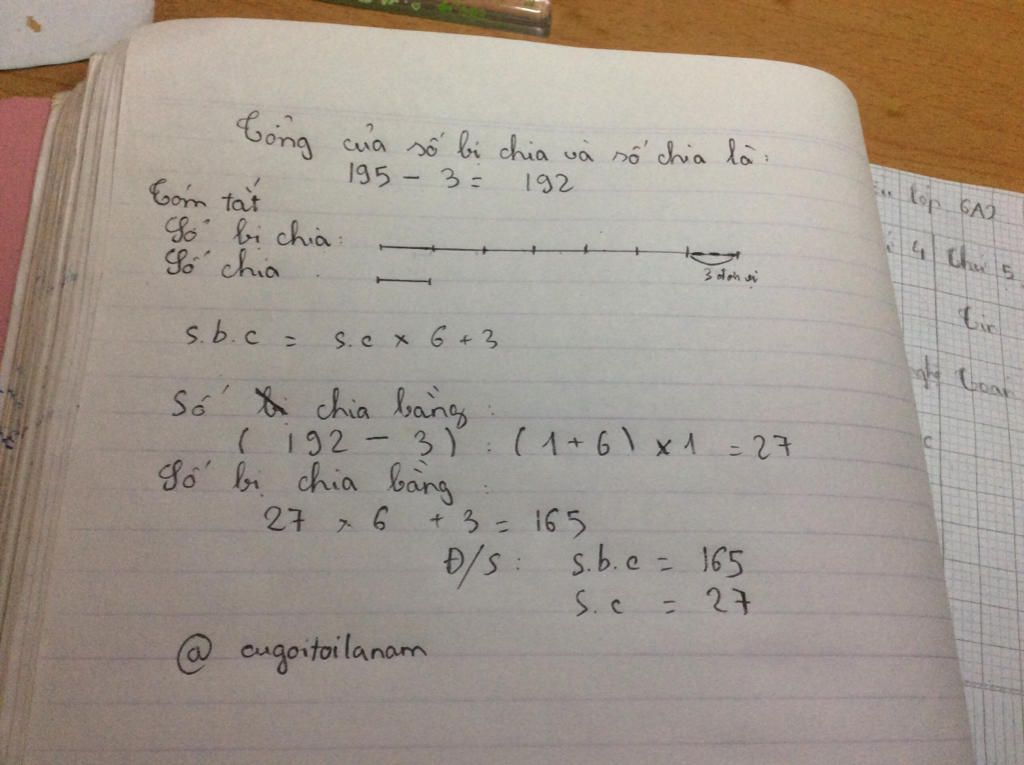 Tổng của số bị chia và số chia là:
195 - 3 = 192
Tóm tắt
Số bị chia:
Số chia
3 đơn vị
s.b.c = s.c × 6 + 3
Số chia bằng:
(192 - 3) : (1 + 6) × 1 = 27
Số bị chia bằng:
27 × 6 + 3 = 165
Đ/S: s.b.c = 165
s.c = 27
@ cugoitoilanam
lớp 6A2
4 Thứ 5
Toán